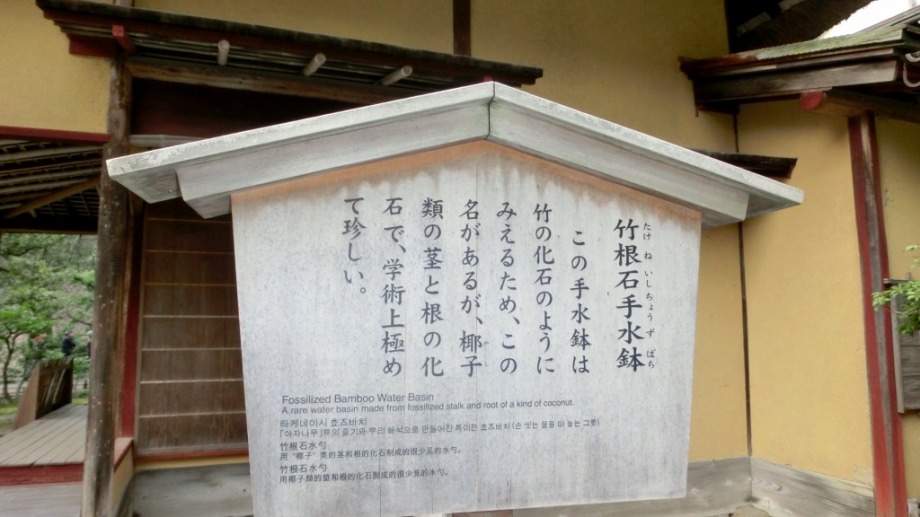 竹根石手水鉢
たけ ね いしちょう ず ばち
この手水鉢は
竹の化石のように
みえるため、この
名があるが、椰子
類の茎と根の化
石で、学術上極め
て珍しい。
Fossilized Bamboo Water Basin
A rare water basin made from fossilized stalk and root of a kind of coconut.
타케네이시 쵸즈바치
「야자나무」류의 줄기와 뿌리 화석으로 만들어진 특이한 쵸즈바치(손 씻는 물을 떠 놓는 그릇)
竹根石水勺
用“椰子”类的茎和根的化石制成的很少见的水勺。
竹根石水勺
用椰子類的莖和根的化石製成的很少見的水勺。